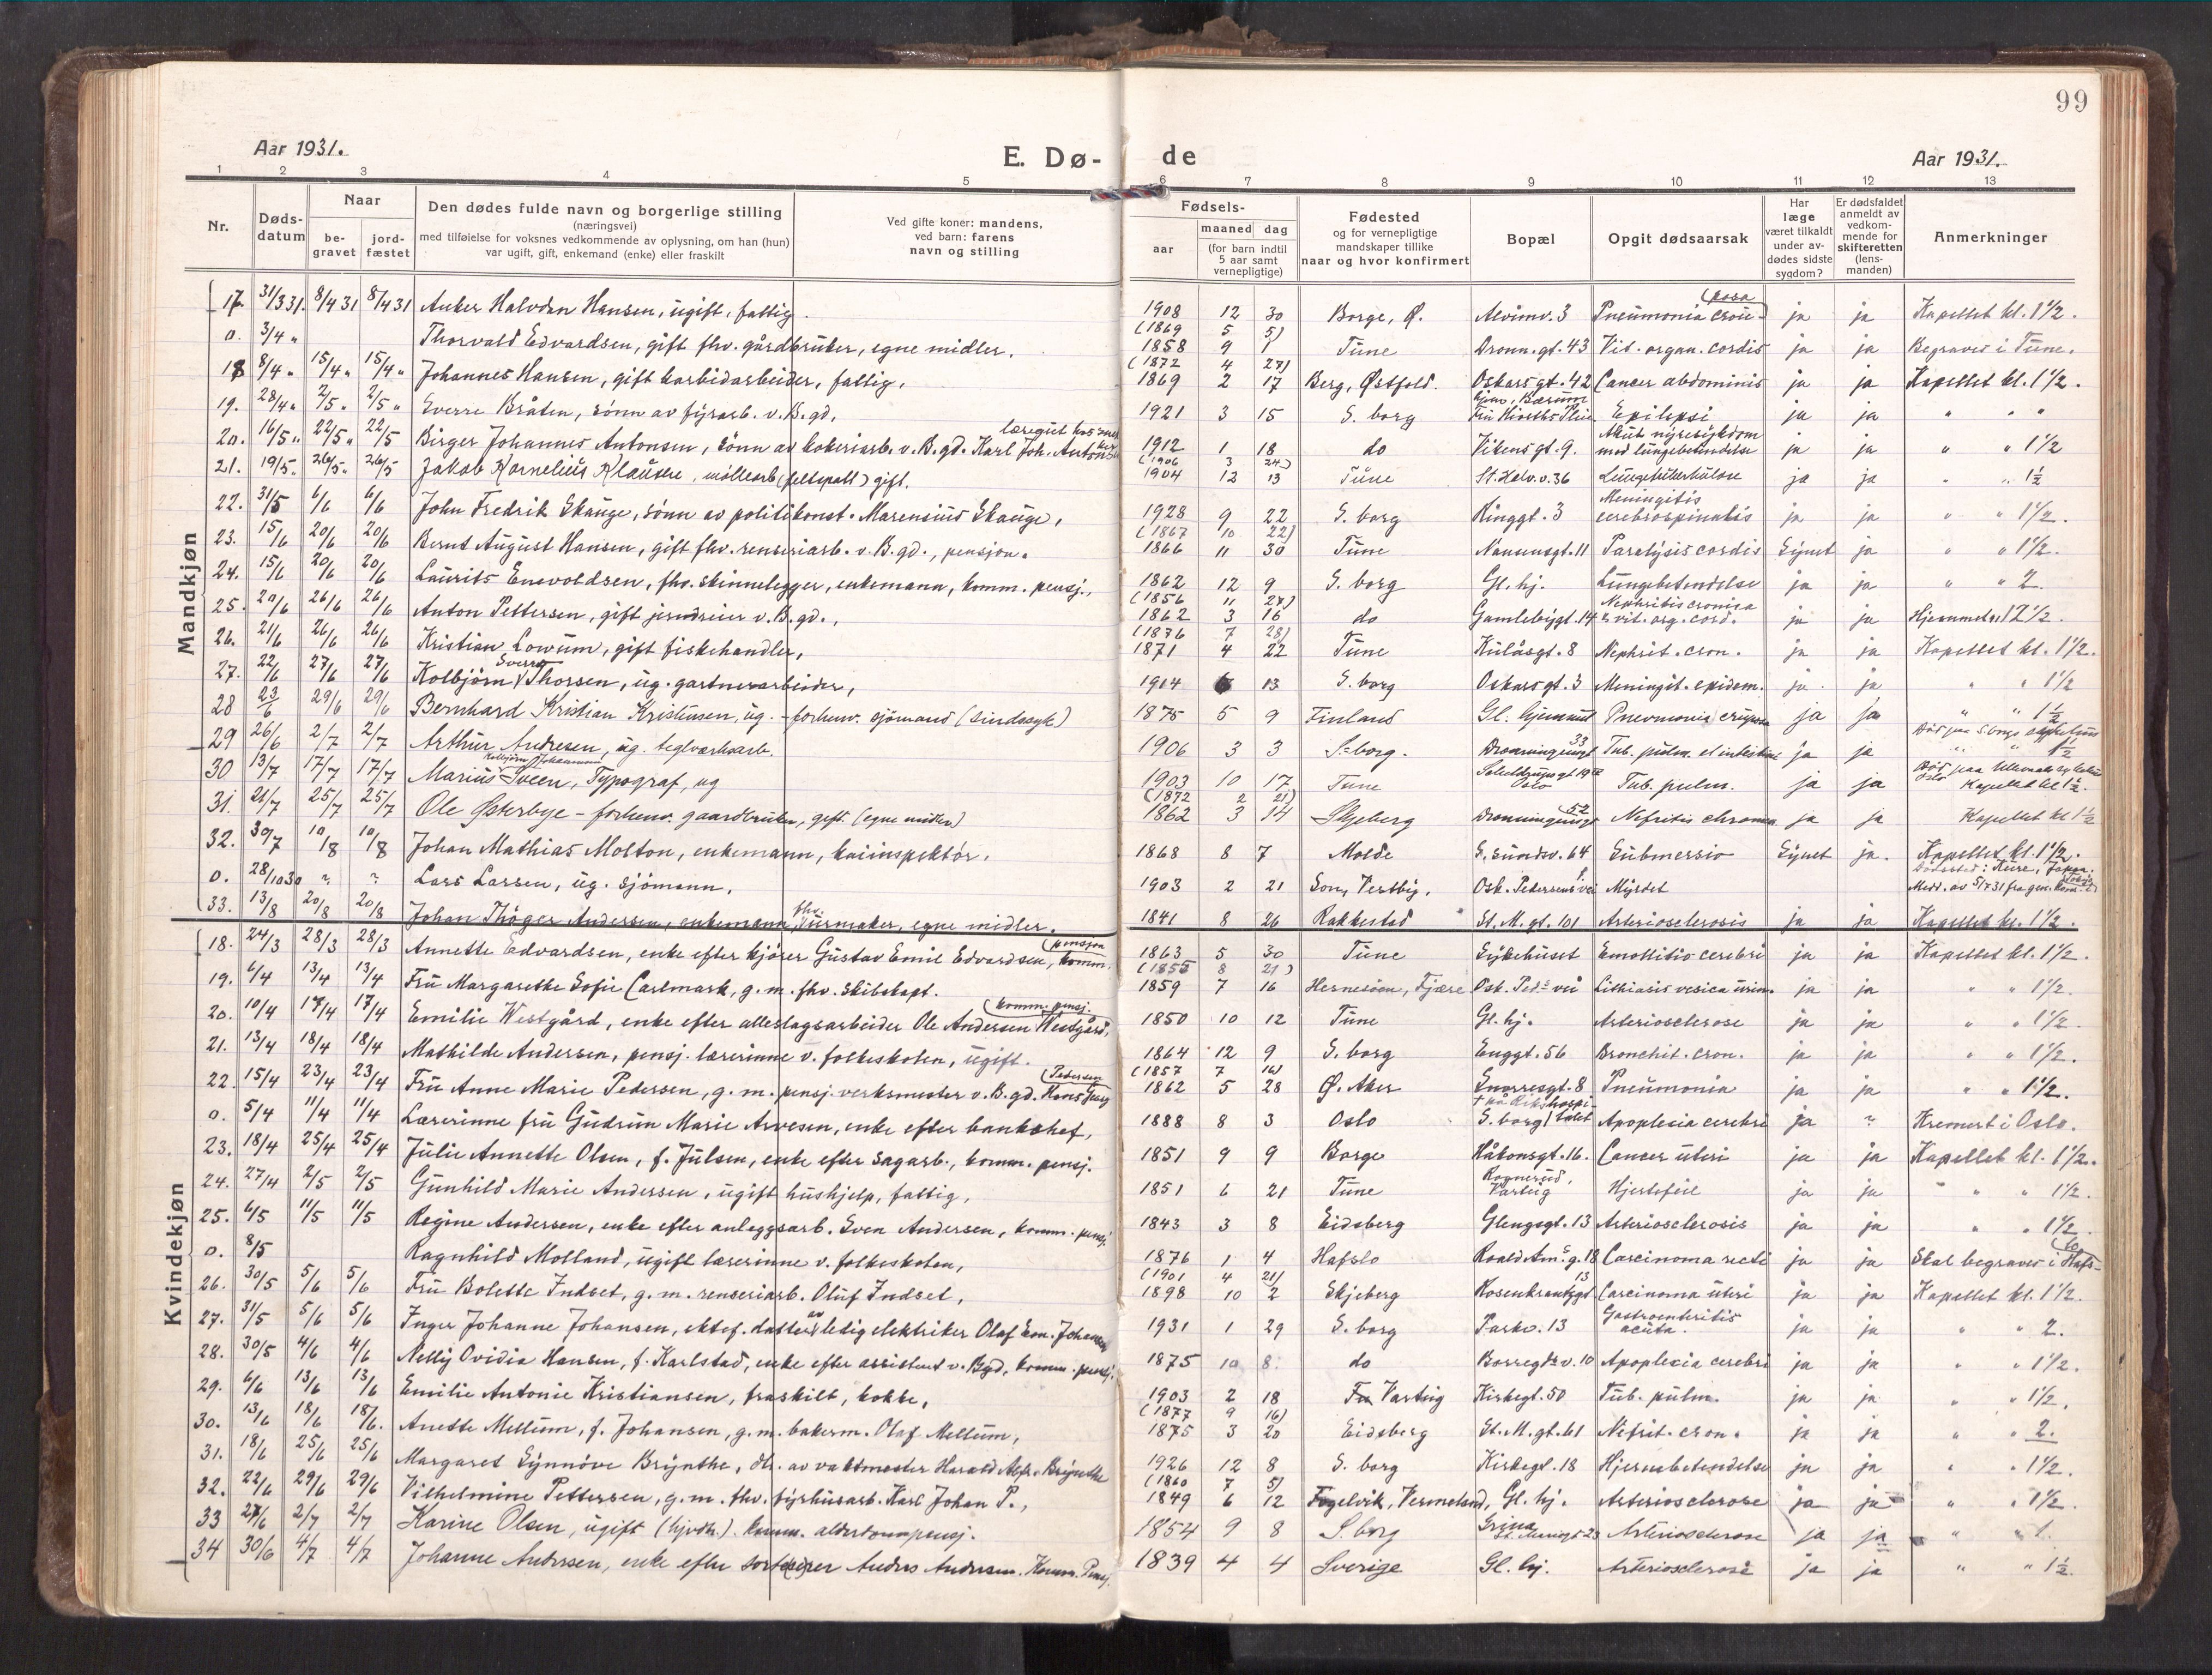 99
Aar 1931.
E. Dø- de
Aar 1931.
1 2 3 4 5 6 7 8 9 10 11 12 13
Nr.
Døds-
datum
Naar
be-
gravet
jord-
fæstet
Den dødes fulde navn og borgerlige stilling
(næringsvei)
med tilføielse for voksnes vedkommende av oplysning, om han (hun)
var ugift, gift, enkemand (enke) eller fraskilt
Ved gifte koner: mandens,
ved barn: farens
navn og stilling
Fødsels-
aar
maaned dag
(for barn indtil
5 aar samt
vernepligtige)
Fødested
og for vernepligtige
mandskaper tillike
naar og hvor konfirmert
Bopæl
Opgit dødsaarsak
Har
læge
været tilkaldt
under av-
dødes sidste
sygdom?
Er dødsfaldet
anmeldt av
vedkom-
mende for
skifteretten
(lens-
manden)
Anmerkninger
Mandkjøn
17. 31/3 31. 8/4 31 8/4 31 Anker Halvdan Hansen, ugift, fattig. 1908 12 30 Borge, Ø. Alvimv. 3 Pneumonia crou- (posa ja ja Kapellet kl. 1 1/2.
(1869 5 5)
0. 3/4 " Thorvald Edvardsen, gift fhv. gårdbruker, egne midler. 1858 9 1 Tune Dronn.gt. 43 Vit. organ. cordis ja ja Begraves i Tune.
(1872 4 27)
18 8/4 " 15/4 " 15/4 " Johannes Hansen, gift karbidarbeider, fattig. 1869 2 17 Berg, Østfold. Oskarsgt. 42 Cancer abdominis ja ja Kapellet kl. 1 1/2.
19. 28/4 " 2/5 " 2/5 " Sverre Bråten, sønn av fyrarb. v. B.gd. 1921 3 15 S. borg Bærum Epilepsi ja ja " " "
læregut hos
20. 16/5 " 22/5 " 22/5 Birger Johannes Antonsen, sønn av kokeriarb. v. B.gd. Karl Joh. Antonsen 1912 1 18 do Vikensgt. 9. Akut nyresykdom med lungebetendelse ja ja " " 1 1/2
(1906 3 24)
21. 19/5 " 26/5 " 26/5 Jakob Kornelius Klausen, møllearb (feltspatt) gift. 1904 12 13 Tune St. Halv.v. 36 Lungetuberkulose ja ja " " 1 1/2
22. 31/5 6/6 6/6 John Fredrik Skauge, sønn av politikonst. Marensius Skauge, 1928 9 22 S. borg Ringgt. 3 Meningitis cerebrospinalis ja ja " " 1 1/2.
(1867 10 22)
23. 15/6 20/6 20/6 Bernt August Hansen, gift fhv. renseriarb. v. B.gd., pensjon. 1866 11 30 Tune Nansensgt. 11 Paralysis cordis Synet ja " " 1 1/2.
24. 15/6 20/6 20/6 Laurits Enevoldsen, fhv. skinnelegger, enkemann, komm. pensj., 1862 12 9 S. borg Gl. hj. Lungebetendelse ja ja " " 2
(1856 11 27)
25. 20/6 26/6 26/6 Anton Pettersen, gift jerndreier v. B.gd., 1862 3 16 do Gamlebygt. 14 Nephritis cronica & vit. org. cord. ja ja Hjemmet kl 12 1/2.
(1876 7 28)
26. 21/6 26/6 26/6 Kristian Lowum, gift fiskehandler, 1871 4 22 Tune Kulåsgt. 8 Nephrit. cron. ja ja Kapellet kl. 1 1/2.
27. 22/6 27/6 27/6 Kolbjørn Sverre Thorsen, ug. gartnerarbeider, 1914 13 S. borg Oskarsgt. 3 Meningit. epidem. ja ja " " 1 1/2
28 23/6 29/6 29/6 Bernhard Kristian Kristensen, ug. - forhenv. sjømand (sindssyk) 1875 5 9 Finland Gl. hjemmet Pneumonia cruposa ja ja " " 1 1/2
29 26/6 2/7 2/7 Arthur Andresen, ug. teglverksarb. 1906 3 3 S-borg. Dronningensgt 33 Tub. pulm. et intestin. ja ja " " 1 1/2
30 13/7 17/7 17/7 Marius Kolbjørn Johannes Sveen, Typograf, ug 1903 10 17 Tune Oslo Tub. pulm. ja ja Kapellet kl 1 1/2.
(1872 2 21)
31. 21/7 25/7 25/7 Ole Østerbye - forhenv. gaardbruker, gift. (egne midler) 1862 3 14 Skjeberg Dronningensgt 52 Nefritis chronica ja ja Kapellet kl 1 1/2
32. 30/7 10/8 10/8 Johan Mathias Molton, enkemann, kaiinspektør. 1868 8 7 Molde S. sundsv. 64 Submersio Synet ja. Kapellet kl. 1 1/2.
0. 28/10 30 ? ? Lars Larsen, ug. sjømann. 1903 2 21 Son, Vestby. Osk. Pedersens vei Myrdet Dødssted: Kure, Japan. Medd. av 5/7 31 fra gen.kons. i Tokio
33. 13/8 20/8 20/8 Johan Thøger Andersen, enkemann, fhv. urmaker, egne midler. 1841 8 26 Rakkestad St. M. gt. 101 Arteriosclerosis ja ja Kapellet kl. 1 1/2.
Kvindekjøn
18. 24/3 28/3 28/3 Annette Edvardsen, enke efter kjører Gustav Emil Edvardsen, komm. (pensjon 1863 5 30 Tune Sykehuset Emollitio cerebri ja ja Kapellet kl. 1 1/2.
(1855 8 21)
19. 6/4 13/4 13/4 Fru Margarethe Sofie Carlmark, g. m. fhv. skibskapt. 1859 7 16 Hernesöen, Fjære Osk. Peds vei Lithiasis vesica urin. ja ja " " 1 1/2.
20. 10/4 17/4 17/4 Emilie Westgård, enke efter alleslagsarbeider Ole Andersen Westgård, (komm. pensj. 1850 10 12 Tune Gl. hj. Arteriosclerose ja ja " " 1 1/2.
21. 13/4 18/4 18/4 Mathilde Andersen, pensj. lærerinne v. folkeskolen, ugift. 1864 12 9 S. borg Enggt. 56 Bronchit. cron. ja ja " " 1 1/2.
(1857 7 16)
22. 15/4 23/4 23/4 Fru Anne Marie Pedersen, g. m. pensj. verksmester v. B.gd. Hans (Pedersen 1862 5 28 Ø. Aker Snorresgt. 8 Pneumonia ja ja " " 1 1/2.
0. 5/4 11/4 11/4 Lærerinne fru Gudrun Marie Arvesen, enke efter bankchef, 1888 8 3 Oslo † på Rikshospi- S. borg (talet Apoplexia cerebri ja ? Kremert i Oslo.
23. 18/4 25/4 25/4 Julie Annette Olsen, f. Julsen, enke efter sagarb., komm. pensj. 1851 9 9 Borge Håkonsgt. 16. Cancer uteri ja ja Kapellet kl. 1 1/2.
24. 27/4 2/5 2/5 Gunhild Marie Andersen, ugift hushjelp, fattig, 1851 6 21 Tune Rognerud, Varteig Hjertefeil ja ja " " 1 1/2.
25. 6/5 11/5 11/5 Regine Andersen, enke efter anleggsarb. Sven Andersen, komm. pensj. 1843 3 8 Eidsberg Glengsgt. 13 Arteriosclerosis ja ja " " 1 1/2.
0. 8/5 Ragnhild Molland, ugift lærerinne v. folkeskolen, 1876 1 4 Hafslo Roald Am.s g. 18 Carcinoma recti ja ja Skal begraves i Hafs- (lo
(1901 4 21)
26. 30/5 5/6 5/6 Fru Bolette Indset, g. m. renseriarb. Oluf Indset, 1898 10 2 Skjeberg Rosenkrantzgt 13 Carcinoma uteri ja ja Kapellet kl. 1 1/2.
27. 31/5 5/6 5/6 Inger Johanne Johansen, ektef. datter av ledig elektriker Olaf Em. Johansen 1931 1 29 S. borg Parkv. 13 Gastroenteritis acuta. ja ja " " 2.
28. 30/5 4/6 4/6 Nelly Ovidia Hansen, f. Karlstad, enke efter assistent v. Bgd, komm. pensj. 1875 10 8. do Borregdr v. 10 Apoplexia cerebri ja ja " " 1 1/2.
29. 6/6 13/6 13/6 Emilie Antonie Kristiansen, fraskilt, kokke, 1903 2 18 Varteig Kirkegt. 50 Tub. pulm. ja ja " " 1 1/2.
(1877 9 16)
30. 13/6 18/6 18/6. Anette Mellum, f. Johansen, g. m. bakerm. Olaf Mellum, 1875 3 20 Eidsberg St. M. gt. 61 Nefrit. cron. ja ja " " 2.
31. 18/6 25/6 25/6 Margaret Synnøve Brynthe, dtr. av vaktmester Harald Alfr. Brynthe 1926 12 8 S. borg Kirkegt. 18 Hjernebetendelse ja ja " " 1 1/2.
(1860 7 5)
32. 22/6 29/6 29/6 Vilhelmine Pettersen, g. m. fhv. fyrhusarb. Karl Johan P., 1849 6 12 Fogelvik, Vermeland, Gl. hj. Arteriosclerose ja ja " " 1 1/2.
33 27/6 2/7 2/7 Karine Olsen, ugift (hjvdh.). komm. alderdomspensj. 1854 9 8 S. borg Arteriosclerose ja ja " " 1.
34 30/6 4/7 4/7 Johanne Andersen, enke efter sorterer Anders Andersen. Komm. Pensj. 1839 4 4 Sverige Gl. hj. Arteriosclerose ja ja " " 1 1/2.